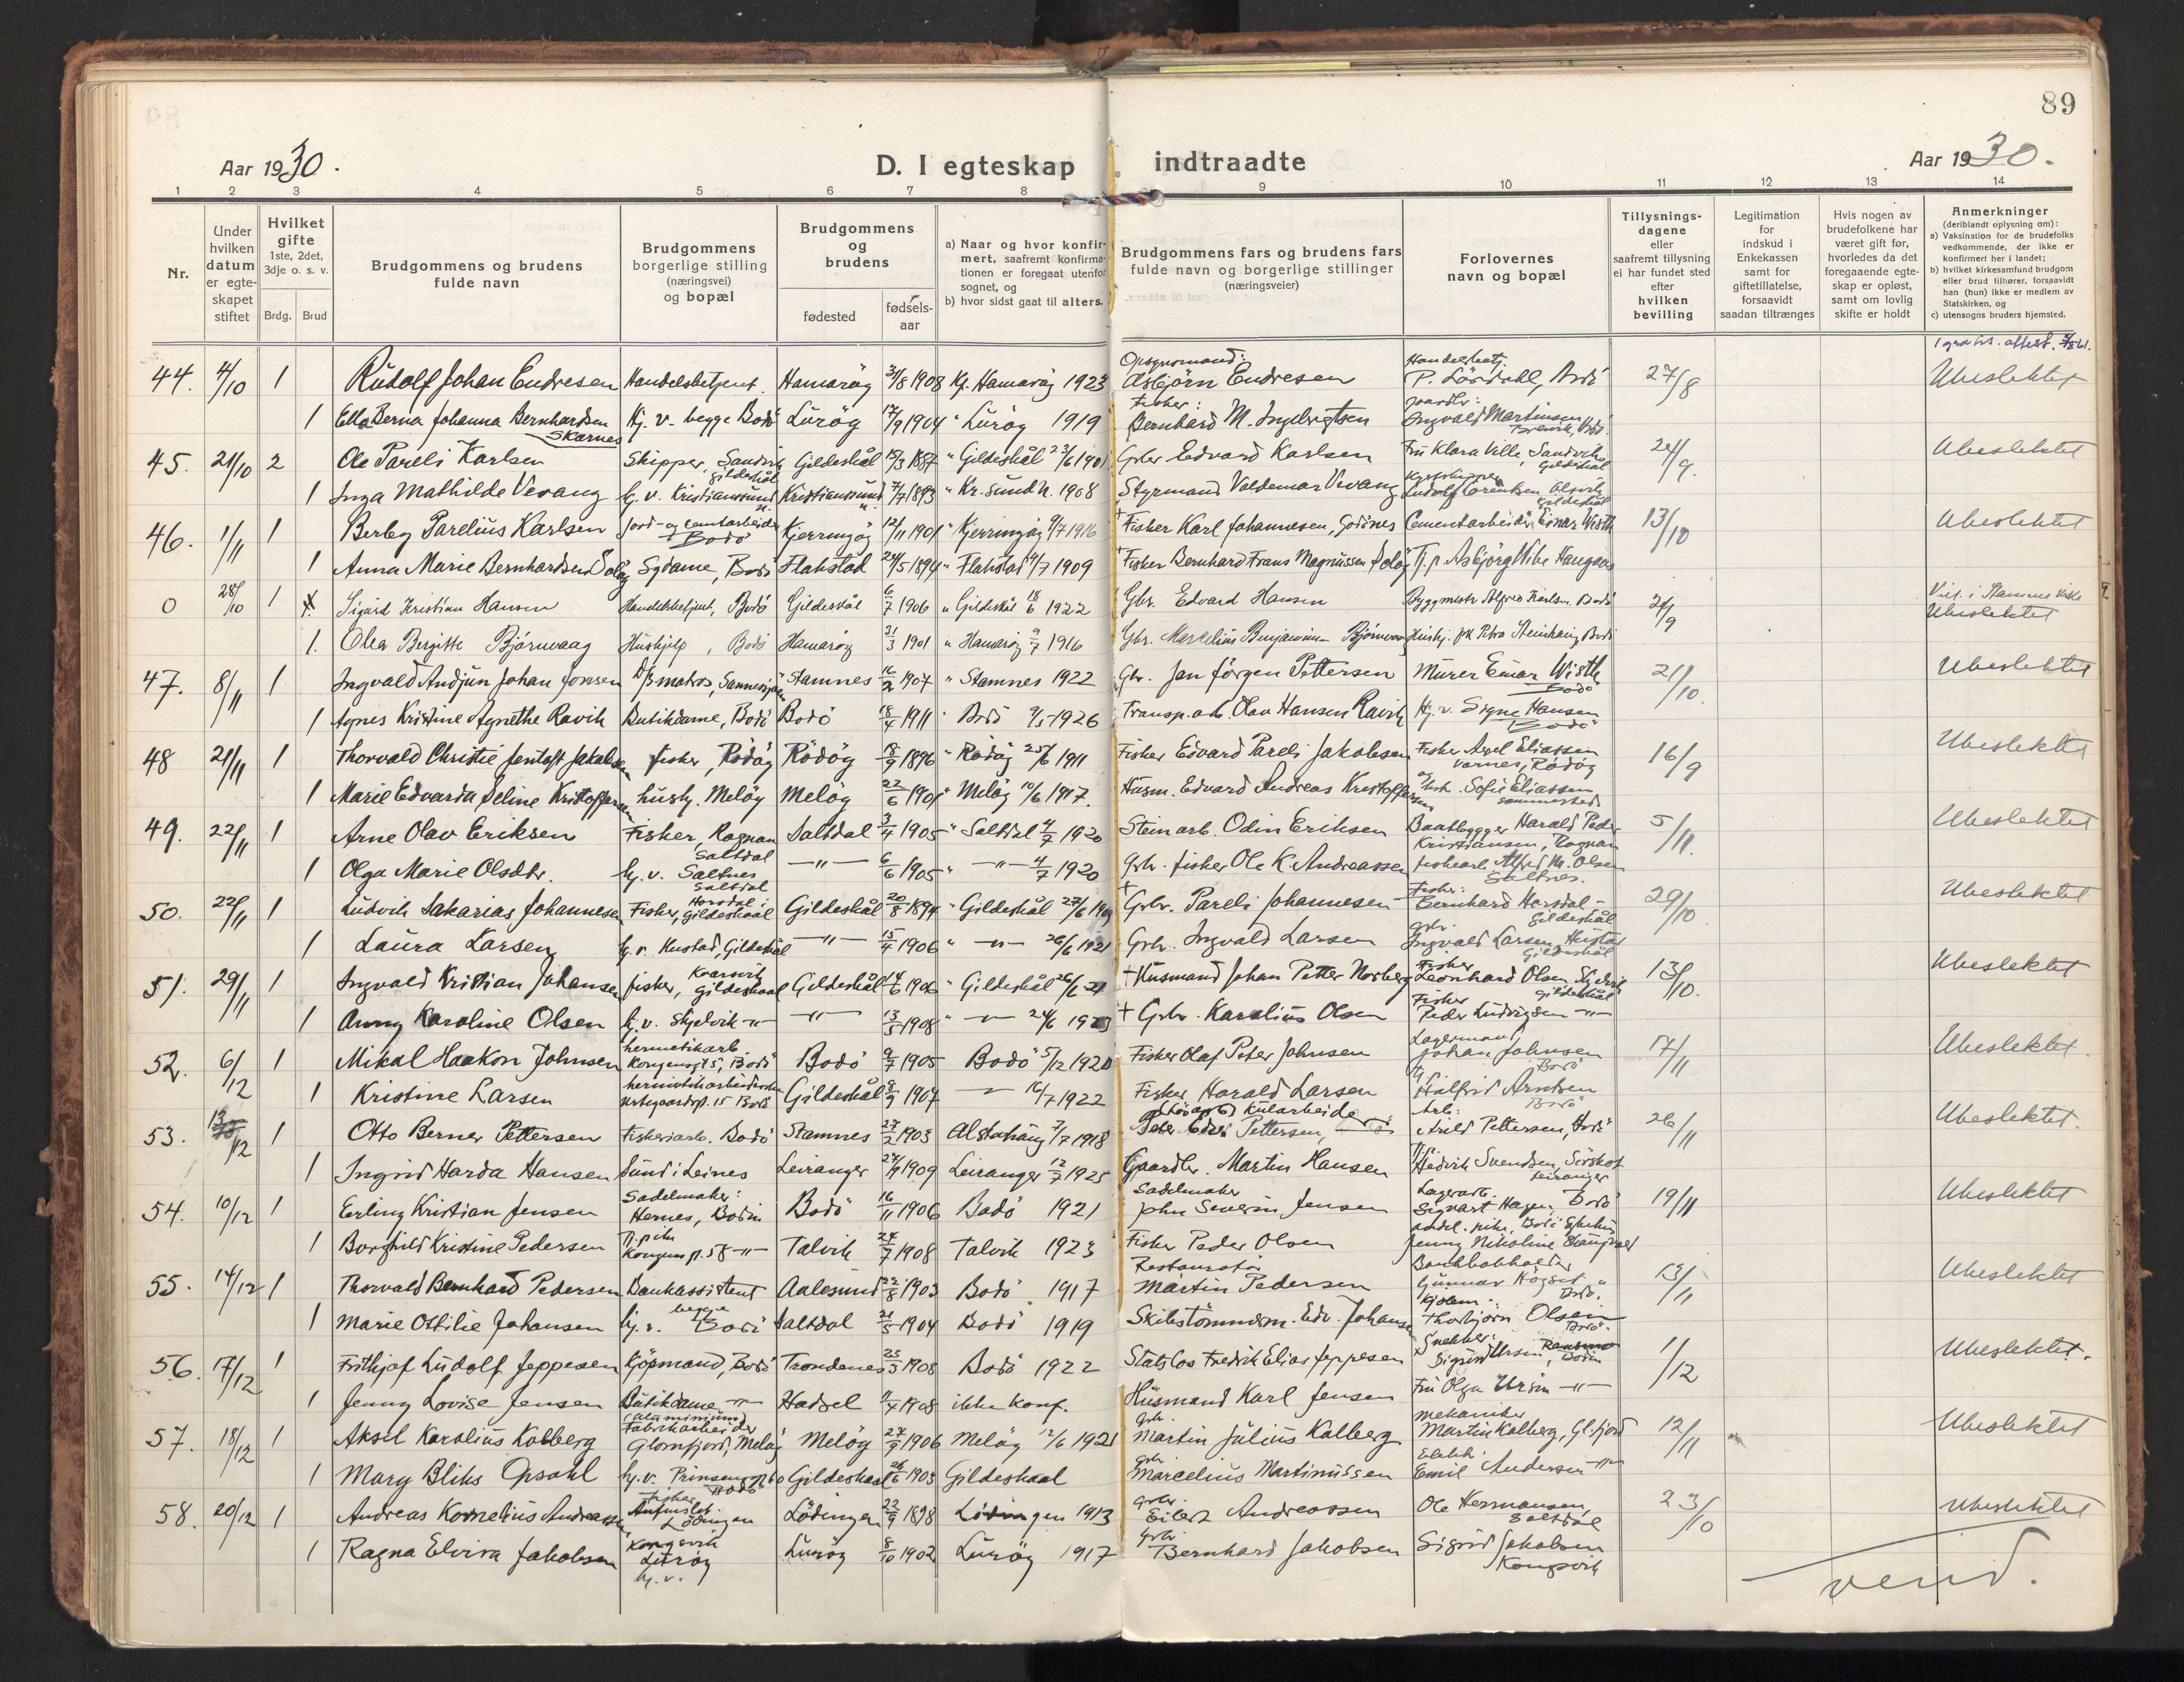 89
Aar 1930.
D. I egteskap indtraadte
Aar 1930.
1 2 3 4 5 6 7 8 9 10 11 12 13 14
Nr.
Under hvilken datum er egteskapet stiftet
Hvilket gifte 1ste, 2det, 3dje o. s. v.
Brdg. Brud
Brudgommens og brudens fulde navn
Brudgommens borgerlige stilling (næringsvei) og bopæl
Brudgommens og brudens
fødested
fødselsaar
a) Naar og hvor konfirmert, saafremt konfirmationen er foregaat utenfor sognet, og
b) hvor sidst gaat til alters.
Brudgommens fars og brudens fars fulde navn og borgerlige stillinger (næringsveier)
Forlovernes navn og bopæl
Tillysningsdagene eller saafremt tillysning ei har fundet sted efter hvilken bevilling
Legitimation for indskud i Enkekassen samt for giftetillatelse, forsaavidt saadan tiltrænges
Hvis nogen av brudefolkene har været gift før, hvorledes da det foregaaende egteskap er opløst, samt om lovlig skifte er holdt
Anmerkninger (deriblandt oplysning om):
a) Vaksination for de brudefolks vedkommende, der ikke er konfirmert her i landet;
b) hvilket kirkesamfund brudgom eller brud tilhører, forsaavidt han (hun) ikke er medlem av Statskirken, og
c) utensogns bruders hjemsted.
44. 4/10 1 Rudolf Johan Endresen Handelsbetjent. Hamarøy 31/8 1908 Kf. Hamarøy 1923 Opsynsmand: Asbjörn Endresen Handelsbetj. P. Lövdahl, Bodö 27/8 Ubeslektet
1 Ella Berna Johanna Bernhardsen Skarnes Hj. v. begge Bodö Lurøy 17/9 1904 " Lurøy 1919 Fisker: Bernhard N. Ingebrigtsen Ingvald Martinsen
45. 21/10 2 Ole Pareli Karlsen Skipper, Sandvik Gildeskål Gildeskål 15/3 1887 " Gildeskål 23/6 1901 Gbr Edvard Karlsen Fru Klara Ville, Sandvik Gildeskål 24/9. Ubeslektet
1 Inga Mathilde Vevang hj. v. Kristianssund n. Kristianssund n. 7/7 1893 " Kr.sund N. 1908 Styrmand Valdemar Vevang Ludolf Lorentsen Gildeskål
46. 1/11 1 Berby Parelius Karlsen Jord- og cementarbeider Bodö Kjerringøy 12/11 1901 " Kjerringøy 9/7 1916 + Fisker Karl Johannesen, Godönes Cementarbeider Einar Wisth 13/10 Ubeslektet
1 Anna Marie Bernhardsen Soløy Sydame, Bodö Flakstad 24/5 1894 " Flakstad 4/7 1909 + Fisker Bernhard Frans Magnussen Soløy Tj.p. Asbjörg Vibe Haugaas
0 28/10 1 Sigurd Kristian Hansen Handelsbetjent, Bodö Gildeskål 6/7 1906 " Gildeskål 18/6 1922 Gbr. Edvard Hansen Byggmestr Alfred Karlsen Bodö 24/9 Viet i Stamnes kirke Ubeslektet
1. Olea Bergitte Bjørnvaag Hushjelp, Bodö Hamarøy 31/3 1901 " Hamarøy 9/7 1916 Gbr. Marselius Benjaminsen Bjørnvaag Hushj. frk Petra Steinhaug Bodö
47. 8/11 1 Ingvald Andjun Johan Jonsen D/S matros, Sannessjøen Stamnes 16/2 1907 " Stamnes 1922 Gbr. Jan Jörgen Pettersen Murer Einar Wisth Bodö 21/10 Ubeslektet
1 Agnes Kristine Agnethe Ravik Butikdame, Bodö Bodö 18/4 1911 " Bodö 9/5 1926 Transp.arb. Olav Hansen Ravik Hj. v. Signe Hansen Bodö
48 21/11 1 Thorvald Christie Jentoft Jakobsen Fisker, Rödöy Rödöy 18/9 1896 " Rödöy 25/6 1911 Fisker Edvard Pareli Jakobsen Fisker Axel Eliassen Værnes, Rödöy 16/9 Ubeslektet
1 Marie Edvarda Seline Kristoffersen hush. Meløy Meløy 22/6 1901 " Meløy 10/6 1917. Husm. Edvard Andreas Kristoffersen Sofie Eliassen sammesteds
49. 22/11 1 Arne Olav Eriksen Fisker, Rognan Saltdal Saltdal 3/4 1905 " Saltdal 4/7 1920 Steinarb. Odin Eriksen Baatbygger Harald Peder Kristiansen, Rognan 5/11. Ubeslektet
1 Olga Marie Olsdtr. hj. v. Saltnes Saltdal —"— 6/6 1905 " —"— 4/7 1920 Grbr. fisker Ole K. Andreassen Alfred M. Olsen Saltnes.
50. 22/11 1 Ludvik Sakarias Johannesen Fisker, Horsdal i Gildeskaal Gildeskål 20/8 1894 " Gildeskål 27/6 1909 + Grbr. Pareli Johannesen Fisker: Bernhard Horsdal - Gildeskål 29/10 Ubeslektet
1 Laura Larsen hj. v. Hustad, Gildeskål —"— 15/4 1906 " —"— 26/6 1921 Grbr. Ingvald Larsen grbr. Ingvald Larsen Hustad Gildeskål
51. 29/11 1 Ingvald Kristian Johansen fisker, Kvarsvik Gildeskaal Gildeskål 14/6 1906 " Gildeskål 26/6 21 + Husmand Johan Petter Norberg Fisker Leonhard Olsen, Skjelvik Gildeskål 13/10. Ubeslektet
1 Anny Karoline Olsen hj. v. Skjelvik —"— —"— 13/5 1908 " —"— 24/6 1923 + Grbr. Karolius Olsen Fisker Peder Ludvigsen —"—
52. 6/12 1 Mikal Haakon Johnsen hermetikarb Kongensgt 5, Bodö Bodö 9/7 1905 Bodö 5/12 1920 Fisker Olaf Peter Johnsen Lagermand Johan Johnsen Bodö 17/11 Ubeslektet.
1 Kristine Larsen hermetikarbeiderske 15 Bodö Gildeskål 8/9 1907 —"— 16/7 1922 Fisker Harald Larsen Halfrid Arntsen Bodö
53. 13/12 1 Otto Berner Pettersen Fiskeriarb. Bodö Stamnes 27/2 1903 Alstahaug 7/7 1918 Kularbeider Peter Edv. Pettersen, Arb: Arild Pettersen, Bodö 26/11 Ubeslektet.
1 Ingrid Harda Hansen Sund i Leines Leiranger 24/9 1909 Leiranger 12/7 1925 Gaardbr. Martin Hansen Hedvik Svendsen, Sörskot Leiranger
54. 10/12 1 Erling Kristian Jensen Sadelmaker: Hernes, Bodin Bodö 16/11 1906 Bodö 1921 Sadelmaker John Severin Jensen Lagerarb. Sigvart Hagen, Bodö 19/11 Ubeslektet
1 Borghild Kristine Pedersen Tj.pike Kongens g. 58 —"— Talvik 24/7 1908 Talvik 1923 Fisker Peder Olsen Jenny Nikoline
55. 14/12 1 Thorvald Bernhard Pedersen Bankassistent Aalesund 22/8 1903 Bodö 1917 Restauratør Martin Pedersen Bankbokholder Gunnar Högset Bodö. 13/11 Ubeslektet
1 Marie Ottilie Johansen hj. v. begge Bodö Saltdal 21/5 1904 Bodö 1919 Skibstömmerm. Edv. Johansen Thorbjörn Olsen Bodö.
56. 17/12 1 Frithjof Ludolf Jeppesen Kjöpmand, Bodö Trondenes 25/3 1908 Bodö 1922 Statslos Fredrik Elias Jeppesen Snekker: Sigurd Ursin, Bodin 1/12 Ubeslektet.
1 Jenny Lovise Jensen Butikdame —"— Hadsel 11/4 1908 ikke konf. Husmand Karl Jensen Fru Olga Ursin —"—
57. 18/12 1 Aksel Karolius Kalberg (aluminium) Fabrikarbeider Glomfjord, Meløy Meløy 27/9 1906 Meløy 12/6 1921 grbr. Martin Julius Kalberg mekaniker Martin Kalberg, Gl.fjord 12/11 Ubeslektet
1 Mary Bliks Opsahl hj. v. Prinsensgt Bodö Gildeskaal 26/6 1903 Gildeskaal grbr. Marcelius Martinussen Elektr. Emil Andersen —"—
58. 20/12 1 Andreas Kornelius Andreassen Fisker Lödingen Lödingen 22/9 1898 Lödingen 1913 grbr. Eilert Andreassen Ole Hermansen, Saltdal 23/10 Ubeslektet
1 Ragna Elvira Jakobsen Kongsvik Lurøy hj. v. Lurøy 8/10 1902 Lurøy 1917 Grbr. Bernhard Jakobsen Sigrid Jakobsen Kongsvik
vend.